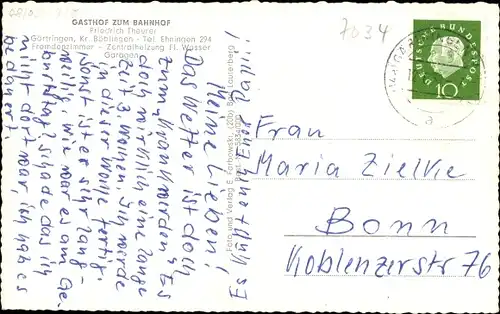 GASTHOF ZUM BAHNHOF
Friedrich Theurer
Gärtringen, Kr. Böblingen - Tel. Ehningen 294
Fremdenzimmer - Zentralheizung Fl. Wasser
Garagen
7034
DEUTSCHE BUNDESPOST
10
a
Meine Lieben!
Das Wetter ist doch
zum Krankwerden. Es
doch wirklich eine lange
Zeit 3. Wochen. Ich werde
in dieser Woche fertig.
Sonst ist es sehr lang-
weilig. Wie war es am Ge-
burtstag? Schade das ich
nicht dort war, ich hab es
bedauert.
Es
Foto und Verlag E. Fortkowski, (20b) Bad Lauterberg
Frau
Maria Zielke
Bonn
Koblenzerstr 76